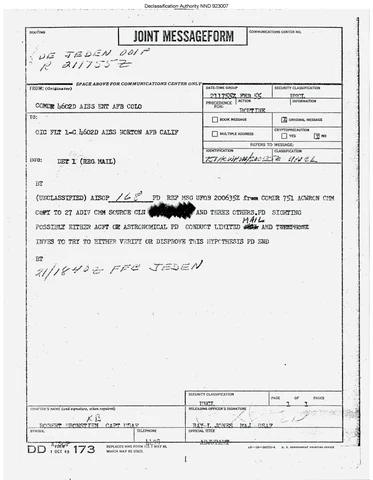 Declassification Authority NND 923007
ROUTING
JOINT MESSAGEFORM
COMMUNICATIONS CENTER NO.
DE JEDEN 001P
R 211755Z
SPACE ABOVE FOR COMMUNICATIONS CENTER ONLY
FROM: (Originator)
DATE-TIME GROUP
SECURITY CLASSIFICATION
211755Z FEB 55
UNCL
COMDR 4602D AISS ENT AFB COLO
PRECEDENCE FOR:
ACTION
INFORMATION
ROUTINE
TO:
BOOK MESSAGE
ORIGINAL MESSAGE
OIC FLT 1-C 4602D AISS NORTON AFB CALIF
MULTIPLE ADDRESS
CRYPTOPRECAUTION
YES
X NO
REFERS TO MESSAGE:
IDENTIFICATION
CLASSIFICATION
INFO: DET 1 (REG MAIL)
UNCL
BT
(UNCLASSIFIED) AISOP 168 PD REF MSG UFOB 200635Z from COMDR 751 ACWRON CMM
COPY TO 27 ADIV CMM SOURCE CLN AND THREE OTHERS.PD SIGHTING
MAIL
POSSIBLY EITHER ACFT OR ASTRONOMICAL PD CONDUCT LIMITED AND TELEPHONE
INVES TO TRY TO EITHER VERIFY OR DISPROVE THIS HYPOTHESIS PD END
BT
21/1840Z FEB JEDEN
SECURITY CLASSIFICATION
PAGE
OF
PAGES
UNCL
1
1
DRAFTER'S NAME (and signature, when required)
RELEASING OFFICER'S SIGNATURE
CAPT USAF
RAY L JONES MAJ USAF
SYMBOL
TELEPHONE
OFFICIAL TITLE
ADJUTANT
DD FORM 1 OCT 49 173
REPLACES NME FORM 173, 1 MAY 48, WHICH MAY BE USED.
U. S. GOVERNMENT PRINTING OFFICE
1